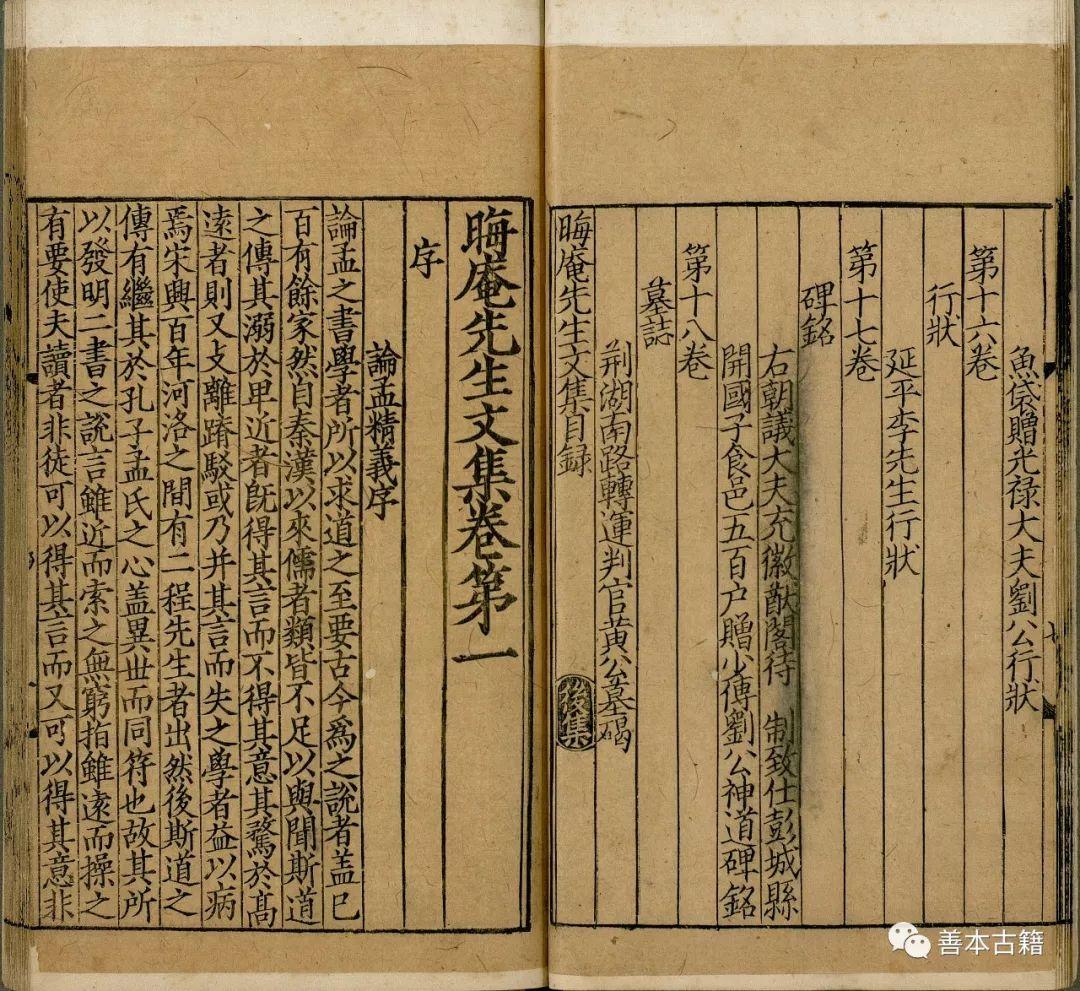 魚袋贈光祿大夫劉公行狀
第十六卷
行狀
延平李先生行狀
第十七卷
碑銘
右朝議大夫充徽猷閣待 制致仕彭城縣
開國子食邑五百户贈少傅劉公神道碑銘
第十八卷
墓誌
荆湖南路轉運判官黄公墓碣
晦庵先生文集目録
後集
晦庵先生文集卷第一
序
論孟精義序
論孟之書學者所以求道之至要古今爲之說者盖已
百有餘家然自秦漢以來儒者類皆不足以與聞斯道
之傳其溺於卑近者旣得其言而不得其意其騖於髙
遠者則又支離踳駁或乃并其言而失之學者益以病
焉宋興百年河洛之間有二程先生者出然後斯道之
傳有繼其於孔子孟氏之心盖異世而同符也故其所
以發明二書之說言雖近而索之無窮指雖遠而操之
有要使夫讀者非徒可以得其言而又可以得其意非
善本古籍